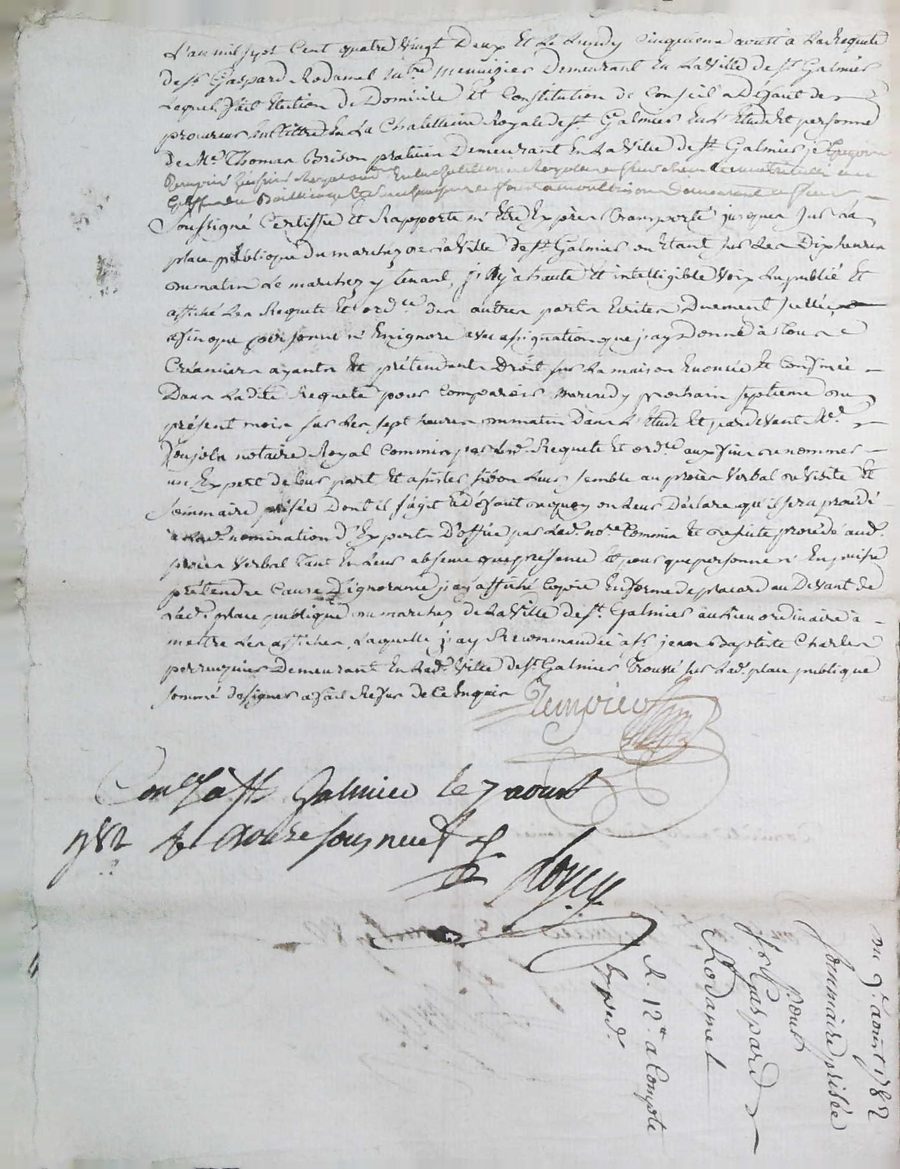 L'an mil sept Cent quatre Vingt Deux Et Le Lundy Cinquieme aoust a La Requete
de sr. Gaspard Rodamel me. menuizier Demeurant En La Ville de st. Galmier
Lequel fait Election de Domicile et Constitution de Conseil a Defaut de
procureur En tittre En La Chatellenie Royale de st. Galmier En L'Etude Et personne
de Me. Thomas Brison praticien Demeurant En La Ville de st. Galmier je
Soussigné Certiffie et Rapporte m'Etre Exprès transporté jusques sur La
place publique du marchez de La Ville de st. Galmier ou Etant sur Les Dix heures
du matin Le marchez y tenant, j'ay a haute Et intelligible Voix Lu publié Et
affiché Les Requete Et ordce. des autres parts Ecrites Duement
afin que personne n'En ignore avec assignation que j'ay Donné à tous
Créanciers ayants Et prétendants Droit sur La maison Enoncée Et Confinée
Dans Ladite Requete pour Comparoir mercredy prochain septieme du
présent mois sur Les sept heures du matin dans L'Etude Et pardevant Me.
notaire Royal Commis par Lad. Requete Et ordce. aux fins de nommer
un Expert de Leur part Et assister si bon Leur semble au procès Verbal de Visite Et
Sommaire prisée Dont il s'agit à Défaut de quoy on Leur Déclare qu'il sera procédé
à Lad. nomination d'Experts D'office par Led. nore. Commis Et Ensuite procédé aud.
procès Verbal tant En Leur absence que présence Et pour que personne n'En puisse
prétendre Cause D'ignorance j'ay affiché Copie En forme de placard au Devant de
Lad. place publique du marchez de La Ville de st. Galmier au Lieu ordinaire à
mettre Les affiches, Laquelle j'ay Recommandée a sr. jean Baptiste Charles
perruquier Demeurant En Lad. Ville de st. Galmier Trouvé sur Lad. place publique
sommé de signer a fait Refus de ce Enquis
Conlé à st Galmier le 7 aoust
1782 R quatorze sous neuf d
du 9e. aoust 1782
Sommaire prisée
pour
Sr. Gaspard
Rodamel
R. 12# a Compte
Exped.